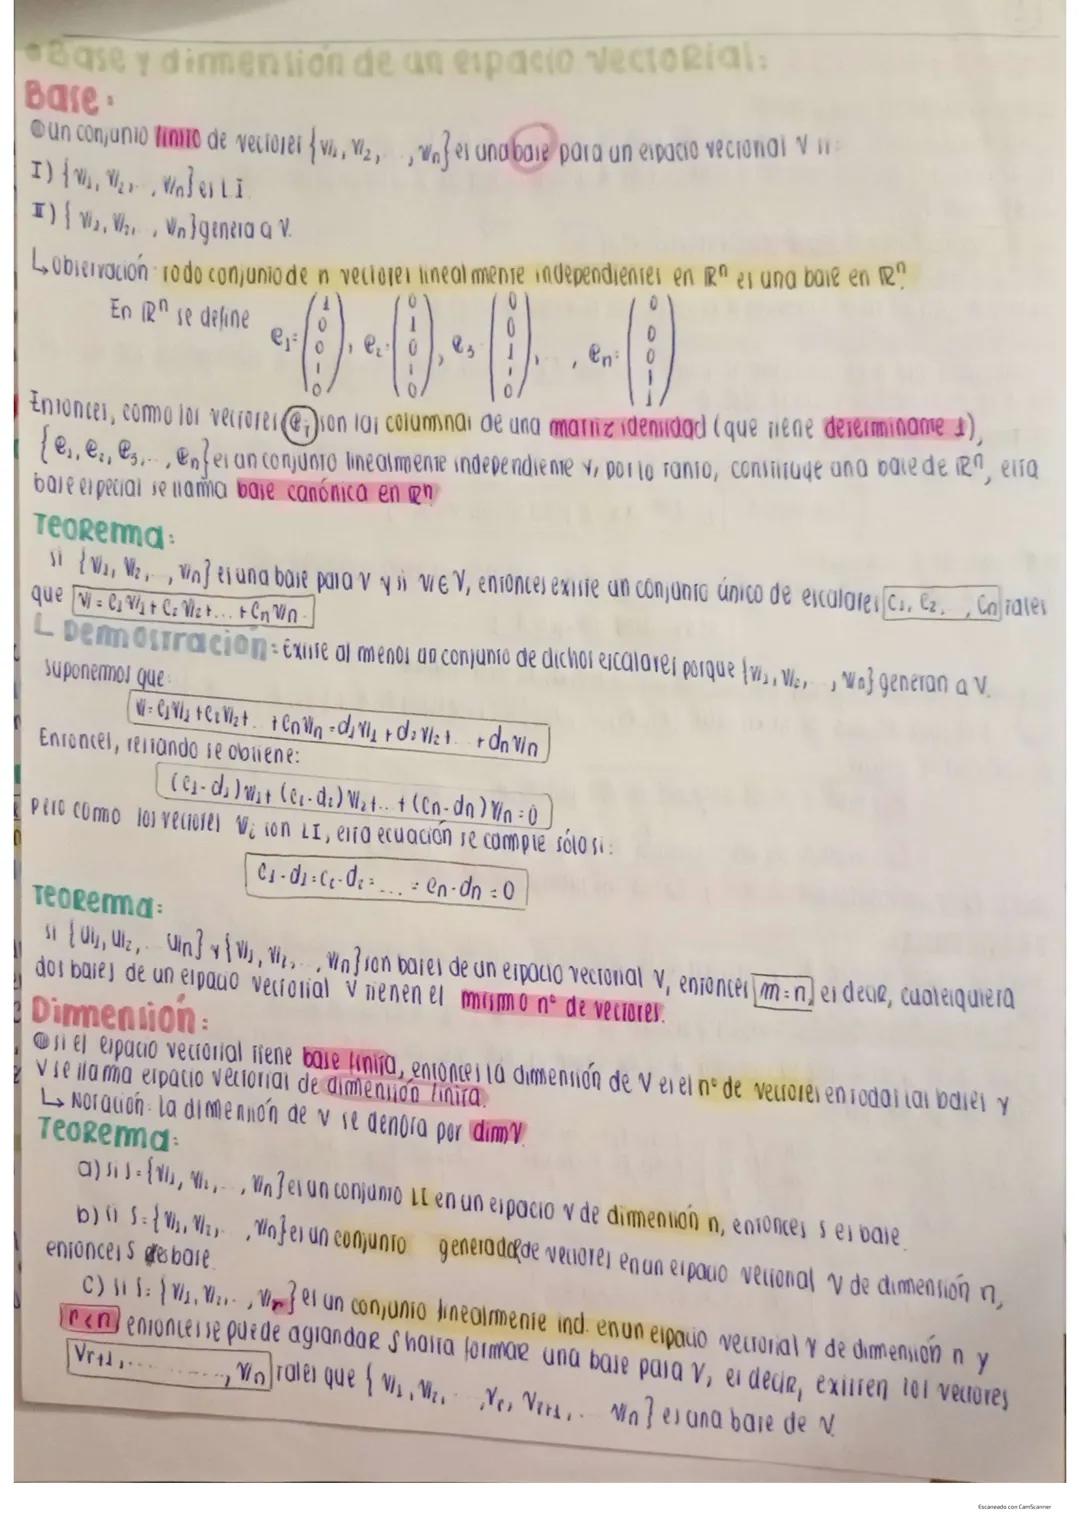 • Base y dimensión de un espacio vectorial:
Base:
① un conjunto finito de vectores {v₁, v₂, ..., vₙ} es una base para un espacio vectorial V si:
I) {v₁, v₂, ..., vₙ} es LI.
II) {v₁, v₂, ..., vₙ} genera a V.
↳ observación: todo conjunto de n vectores linealmente independientes en ℝⁿ es una base en ℝⁿ.
En ℝⁿ se define e₁ = (1 0 0 ⋮ 0), e₂ = (0 1 0 ⋮ 0), e₃ = (0 0 1 ⋮ 0), ..., eₙ = (0 0 0 ⋮ 1)
Entonces, como los vectores eᵢ son las columnas de una matriz identidad (que tiene determinante 1),
{e₁, e₂, e₃, ..., eₙ} es un conjunto linealmente independiente y, por lo tanto, constituye una base de ℝⁿ, esta
base especial se llama base canónica en ℝⁿ
Teorema:
si {v₁, v₂, ..., vₙ} es una base para V y si v ∈ V, entonces existe un conjunto único de escalares c₁, c₂, ..., cₙ tales
que v = c₁v₁ + c₂v₂ + ... + cₙvₙ.
↳ Demostración: Existe al menos un conjunto de dichos escalares porque {v₁, v₂, ..., vₙ} generan a V.
Suponemos que:
v = c₁v₁ + c₂v₂ + ... + cₙvₙ = d₁v₁ + d₂v₂ + ... + dₙvₙ
Entonces, restando se obtiene:
(c₁-d₁)v₁ + (c₂-d₂)v₂ + ... + (cₙ-dₙ)vₙ = 0
Pero como los vectores vᵢ son LI, esta ecuación se cumple sólo si:
c₁-d₁ = c₂-d₂ = ... = cₙ-dₙ = 0
Teorema:
si {u₁, u₂, ... uₙ} y {v₁, v₂, ..., vₙ} son bases de un espacio vectorial V, entonces m=n, es decir, cualesquiera
dos bases de un espacio vectorial V tienen el mismo n° de vectores.
Dimensión:
① si el espacio vectorial tiene base finita, entonces la dimensión de V es el n° de vectores en todas las bases y
V se llama espacio vectorial de dimensión finita.
↳ Notación: La dimensión de V se denota por dim V.
Teorema:
a) si S = {v₁, v₂, ..., vₙ} es un conjunto LI en un espacio V de dimensión n, entonces S es base.
b) si S = {v₁, v₂, ..., vₙ} es un conjunto generador de vectores en un espacio vectorial V de dimensión n,
entonces S es base.
c) si S = {v₁, v₂, ..., vᵣ} es un conjunto linealmente ind. en un espacio vectorial V de dimensión n y
r<n, entonces se puede agrandar S hasta formar una base para V, es decir, existen los vectores
vᵣ₊₁, ......, vₙ tales que {v₁, v₂, ..., vᵣ, vᵣ₊₁, ... vₙ} es una base de V.
Escaneado con CamScanner